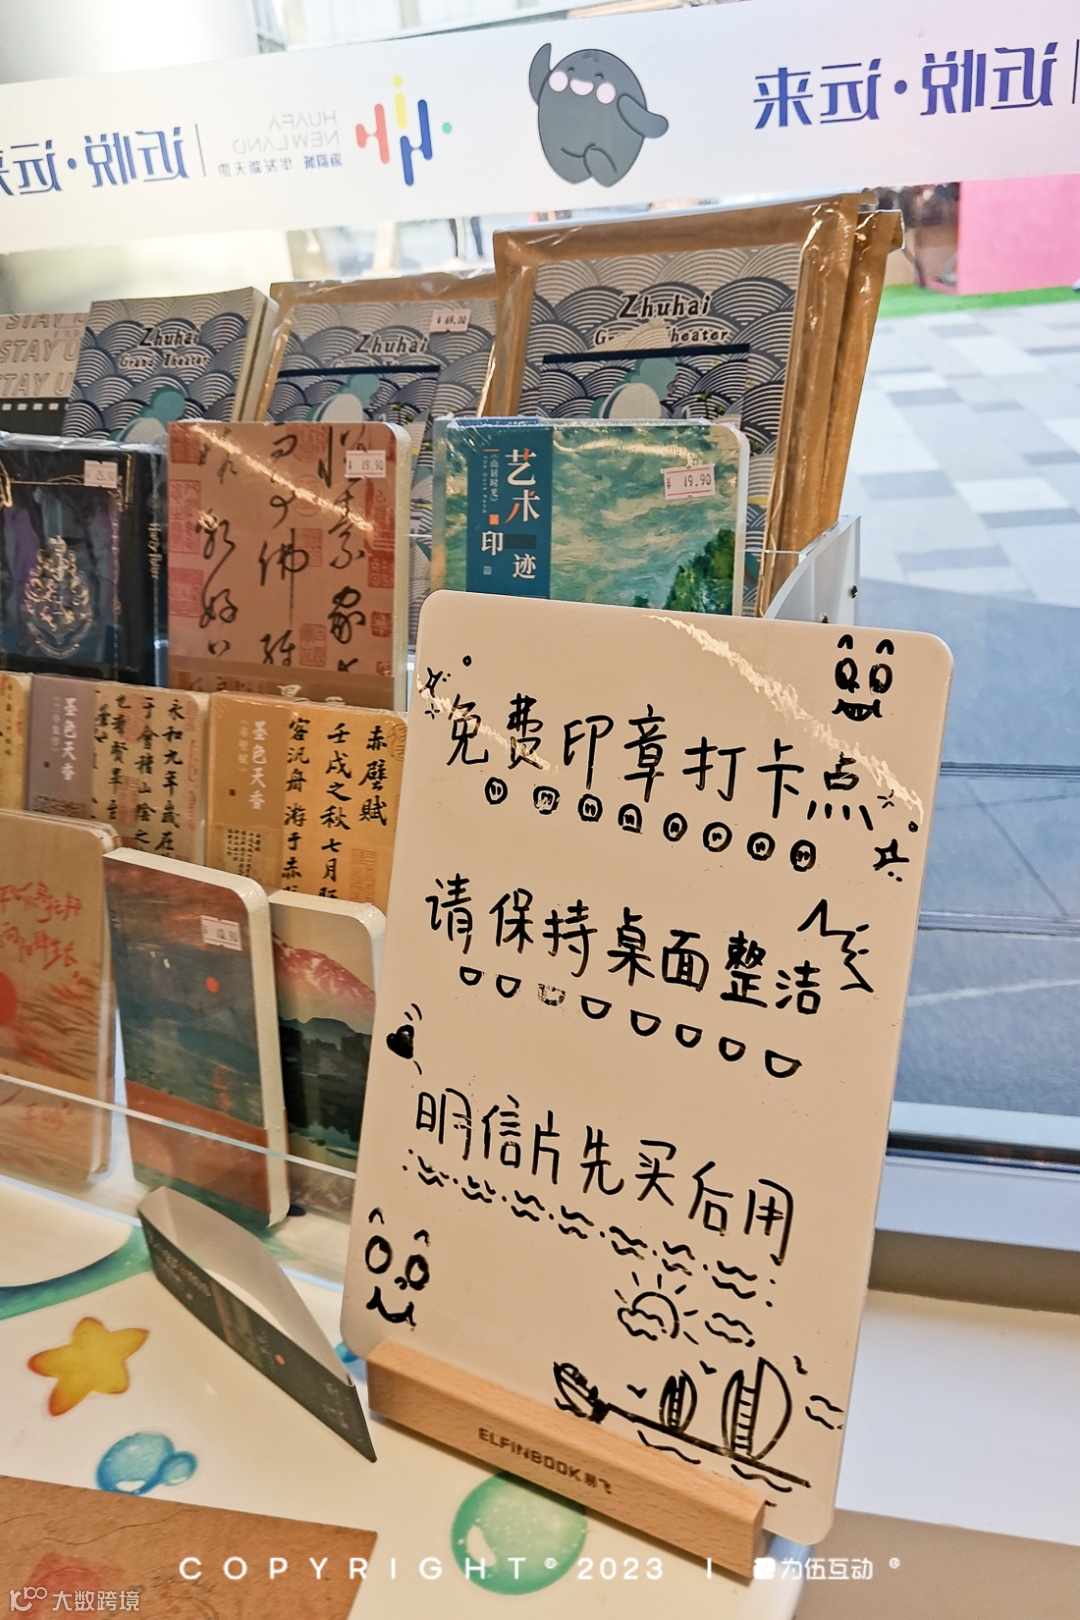 近悦·远来
HUAFA
NEWLAND
近悦·远来
STAY U
STAY U
STAY U
Zhuhai
Grand Theater
Zhuhai
¥ 69.00
Zhuhai
Grand Theater
¥ 19.90
艺术
印迹
¥ 19.90
墨色天香
永和九年岁在
于会稽山阴之
墨色天香
赤壁赋
壬戌之秋七月
客泛舟游于赤
免费印章打卡点
请保持桌面整洁
明信片先买后用
ELFINBOOK 易飞
COPYRIGHT © 2023 | 为伍互动 ®
大数跨境